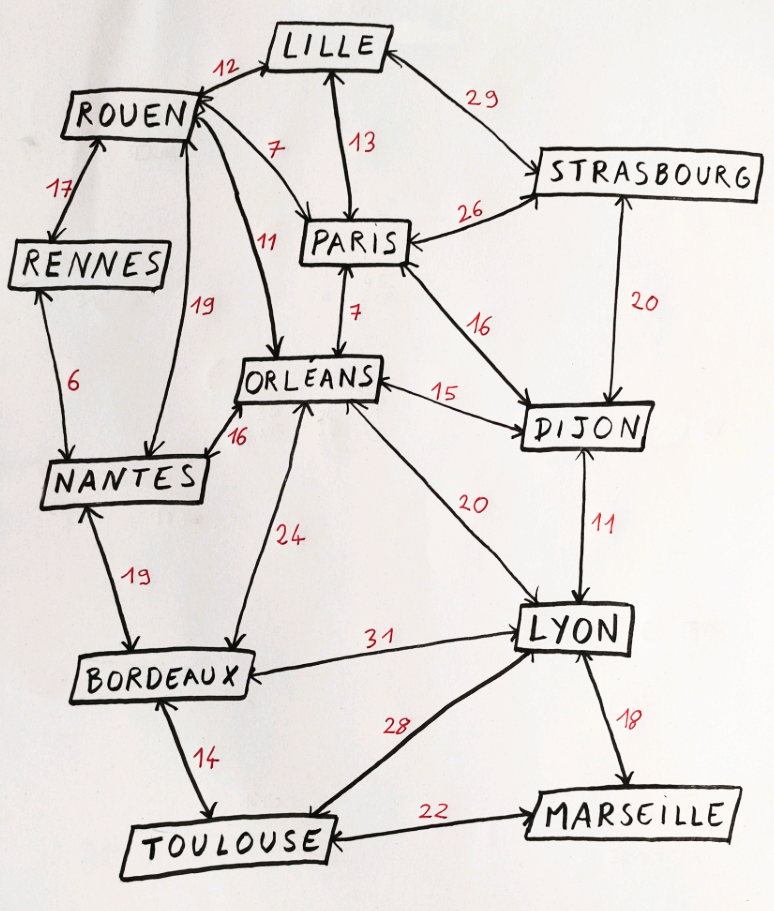 LILLE
12
ROUEN
29
7
13
STRASBOURG
17
26
11
PARIS
RENNES
19
7
20
16
6
ORLÉANS
15
16
DIJON
NANTES
20
11
24
19
31
LYON
BORDEAUX
28
18
14
22
MARSEILLE
TOULOUSE